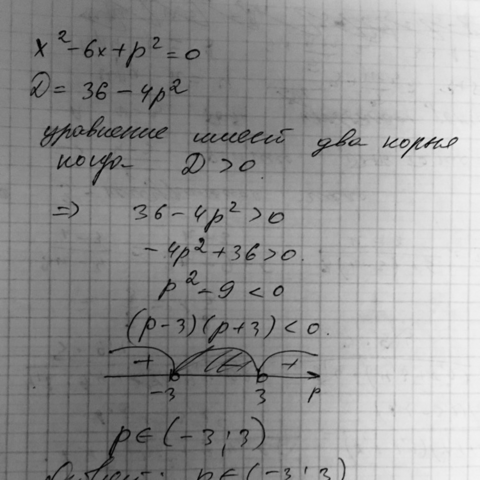 x² - 6x + p² = 0
D = 36 - 4p²
уравнение имеет два корня
когда D > 0
=> 36 - 4p² > 0
-4p² + 36 > 0.
p² - 9 < 0
(p-3)(p+3) < 0.
+ - +
-3 3 p
p ∈ (-3; 3)
Ответ: p ∈ (-3; 3)